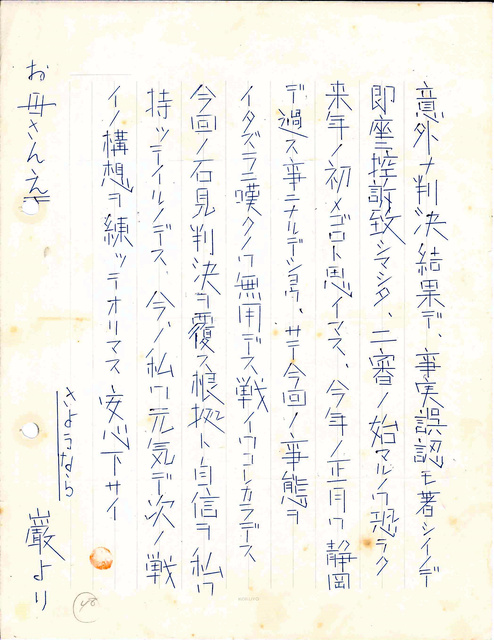 意外ナ判決結果デ、事実誤認モ著シイノデ
即座ニ控訴致シマシタ、二審ノ始マルノワ恐ラク
来年ノ初メゴロト思イマス、今年ノ正月ワ静岡
デ過ス事ニナルデショウ、サテ今回ノ事態ヲ
イタズラニ嘆クノワ無用デス戦イワコレカラデス
今回ノ石見判決ヲ覆ス根拠ト自信ヲ私ワ
持ッテイルノデス、今、私ワ元気デ次ノ戦
イノ構想ヲ練ッテオリマス 安心下サイ
さようなら
お母さんえ
巌より
48